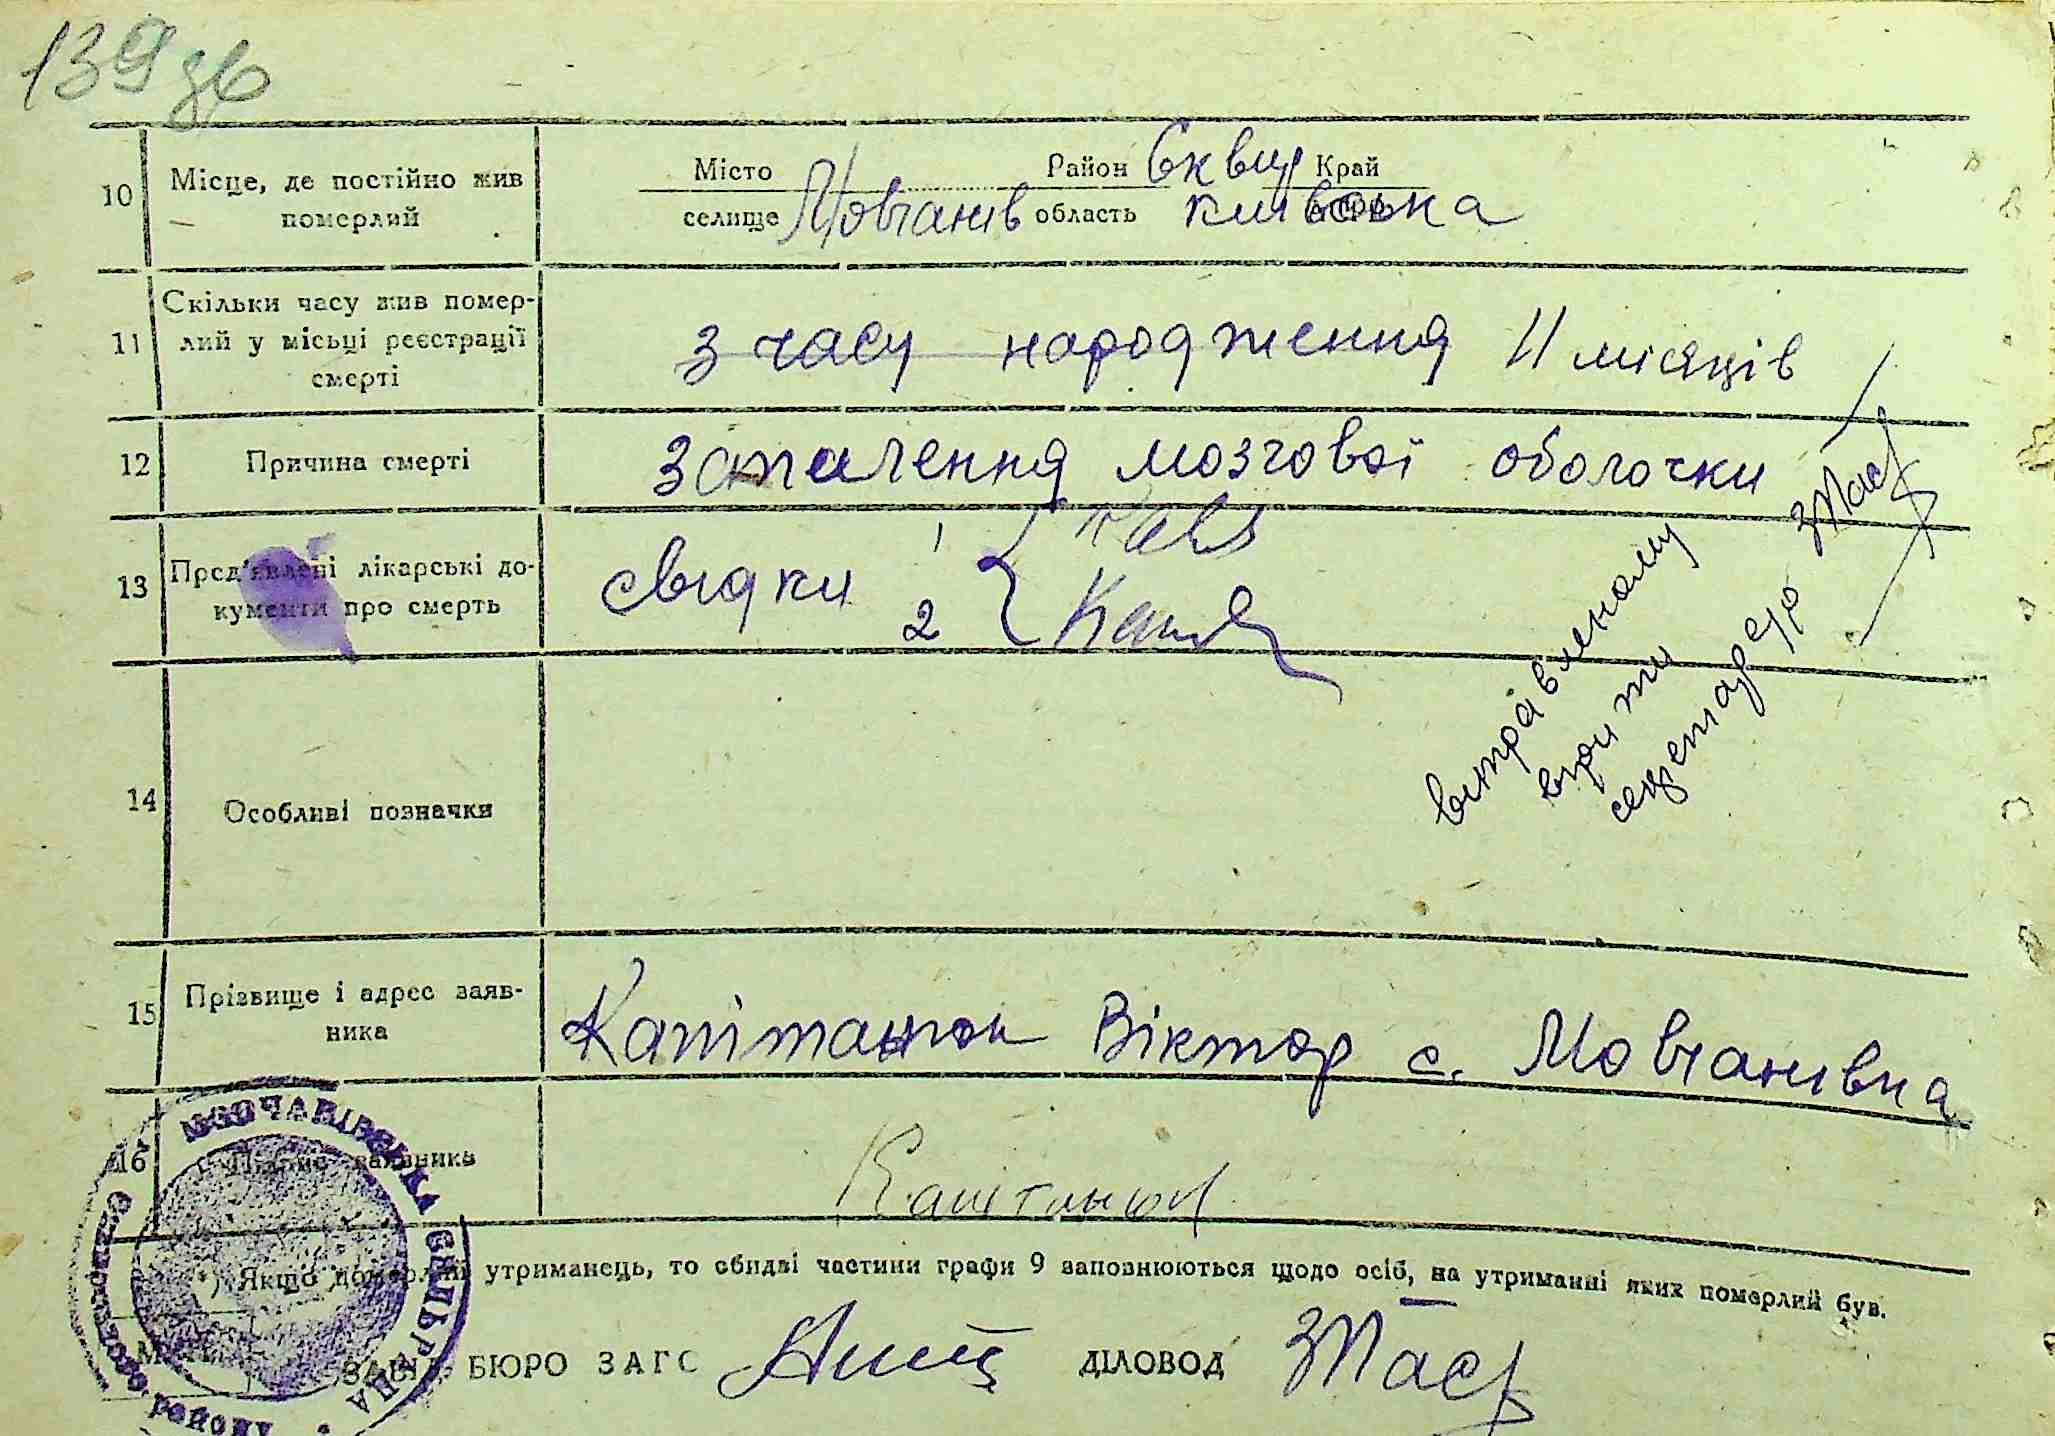 139 зв
10 Місце, де постійно жив померлий Місто Район Сквир Край
селище Мовчанів область київська
11 Скільки часу жив померлий у місьці реєстрації смерті
з часу народження 11 місяців
12 Причина смерті запалення мозгової оболочки
13 Пред'явлені лікарські документи про смерть
свідки 1
2
виправленому
вірити
секретар с/р ЗПас
14 Особливі позначки
15 Прізвище і адрес заявника
Капітанюк Віктор с. Мовчанівка
16 Підпис заявника Капітанюк
*) Якщо померлий утриманець, то обидві частини графи 9 заповнюються щодо осіб, на утриманні яких померлий був.
М. П.
ЗАВІД. БЮРО ЗАГС ДІЛОВОД ЗПас
МОВЧАНІВСЬКА СІЛЬРАДА
району